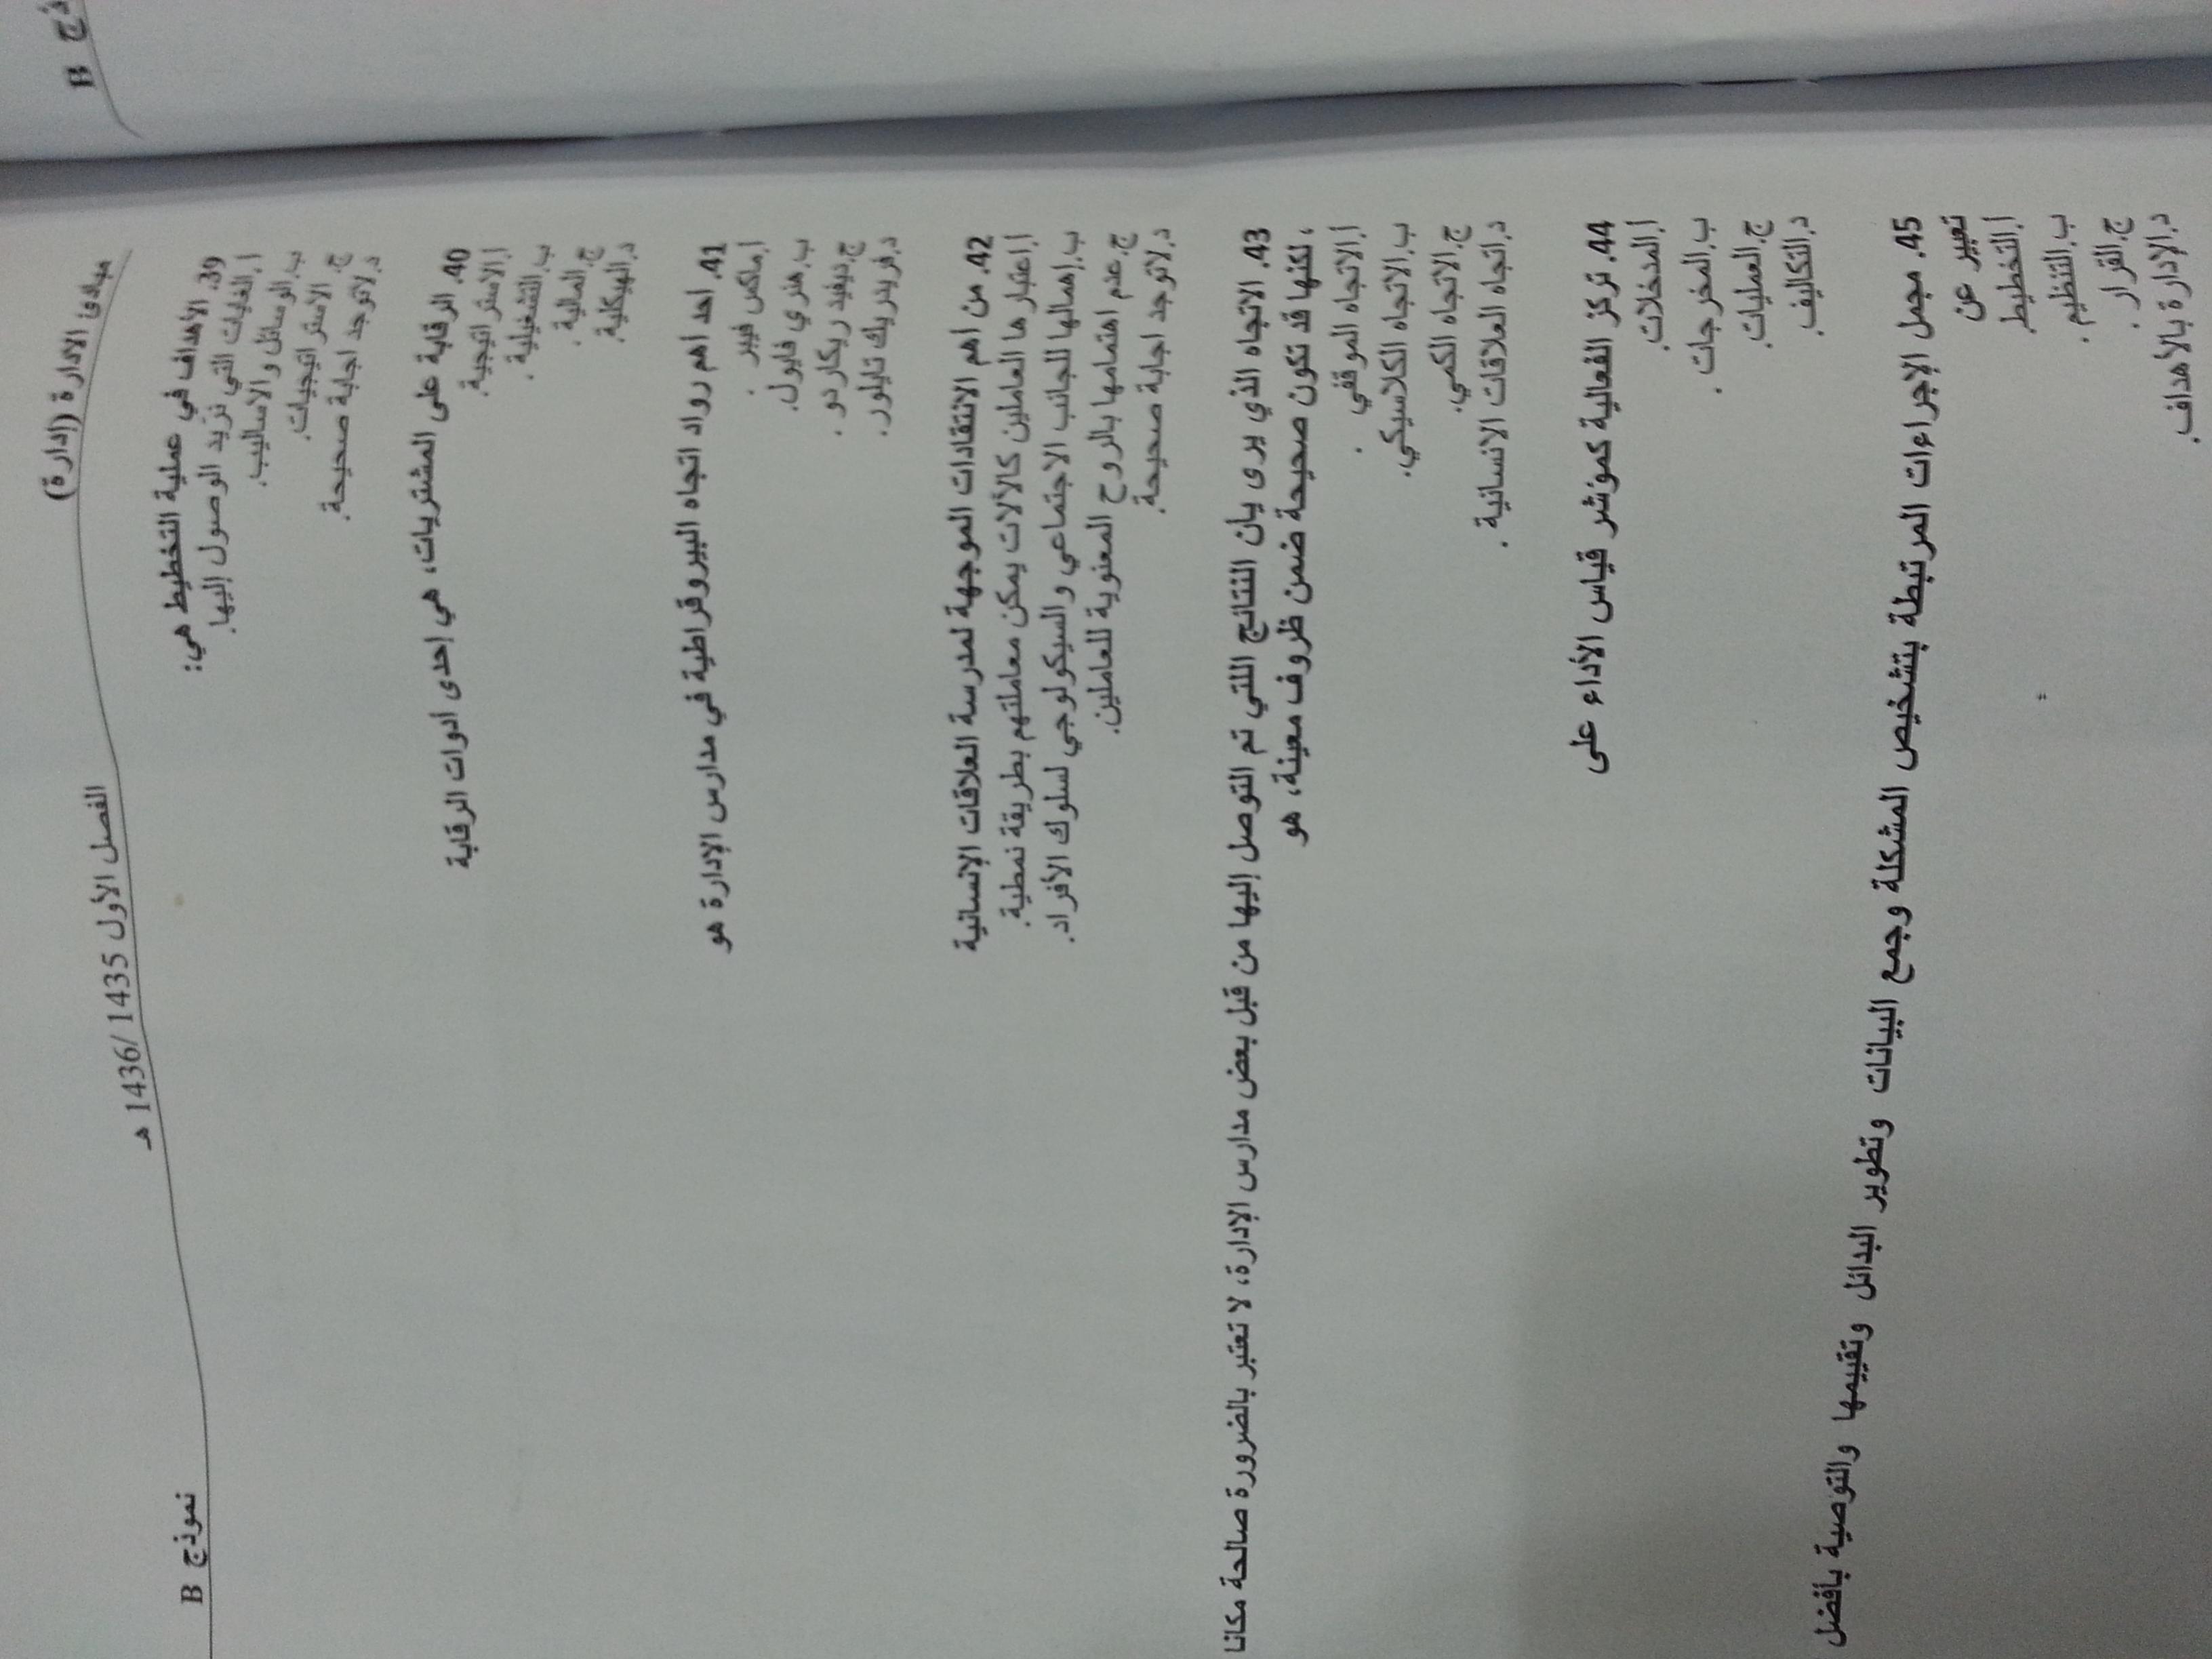 ذج B
مبادئ الادارة (إدارة) الفصل الأول 1435 /1436 هـ نموذج B
39. الأهداف في عملية التخطيط هي:
ا.الغايات التي نريد الوصول إليها.
ب.الوسائل والاساليب.
ج. الاستراتيجيات.
د.لاتوجد اجابة صحيحة.
40. الرقابة على المشتريات، هي إحدى ادوات الرقابة
ا.الاستراتيجية.
ب.التشغيلية .
ج.المالية .
د.الهيكلية.
41. احد اهم رواد اتجاه البيروقراطية في مدارس الإدارة هو
ا.ماكس فيبر .
ب.هنري فايول.
ج.ديفيد ريكاردو .
د.فريدريك تايلور.
42. من اهم الانتقادات الموجهة لمدرسة العلاقات الإنسانية
ا.اعتبارها العاملين كالألات يمكن معاملتهم بطريقة نمطية.
ب.إهمالها للجانب الاجتماعي والسيكولوجي لسلوك الأفراد.
ج.عدم اهتمامها بالروح المعنوية للعاملين.
د.لاتوجد اجابة صحيحة.
43. الاتجاه الذي يرى بان النتائج اللتي تم التوصل إليها من قبل بعض مدارس الإدارة، لا تعتبر بالضرورة صالحة مكانا
، لكنها قد تكون صحيحة ضمن ظروف معينة، هو
ا.الاتجاه الموقفي .
ب.الاتجاه الكلاسيكي.
ج.الاتجاه الكمي.
د.اتجاه العلاقات الانسانية .
44. تركز الفعالية كمؤشر قياس الأداء على
ا.المدخلات.
ب.المخرجات .
ج.العمليات.
د.التكاليف.
45. مجمل الإجراءات المرتبطة بتشخيص المشكلة وجمع البيانات وتطوير البدائل وتقييمها والتوصية بأفضل
تعبير عن
ا.التخطيط.
ب.التنظيم .
ج.القرار .
د.الإدارة بالأهداف.